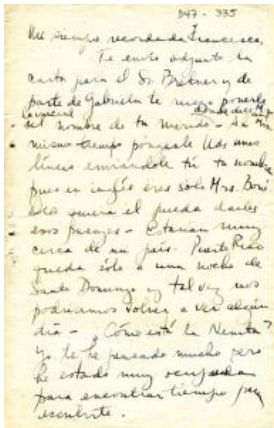 D47 - 335
Mi siempre recordada Francesca,
Te envío adjunto la
carta para el Sr. Bretner y de
parte de Gabriela te ruego ponerle
el nombre de tu marido - Al
mismo tiempo póngale Uds unas
líneas enviándole tú tu nombre
pues en inglés eres sólo Mrs.
el pueda darles
esos pasajes - Estarían muy
cerca de mi país. Puerto Rico
queda sólo a una noche de
Santo Domingo y tal vez nos
podríamos volver a ver algún
día - ¿Cómo está la Nenita?
Yo te he pensado mucho pero
he estado muy ocupada
para encontrar tiempo para
escribirte.